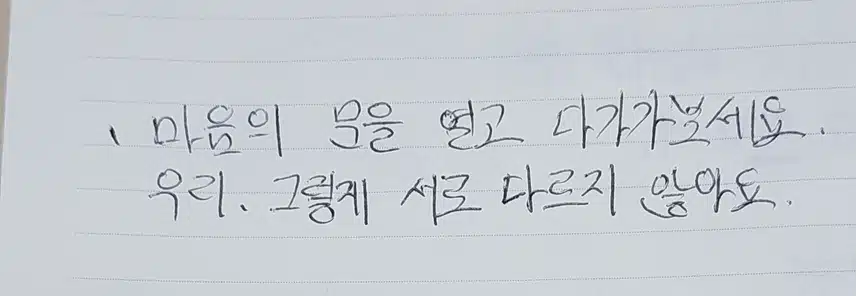 、마음의 문을 열고 다가가보세요.
우리、그렇게 서로 다르지 않아요.